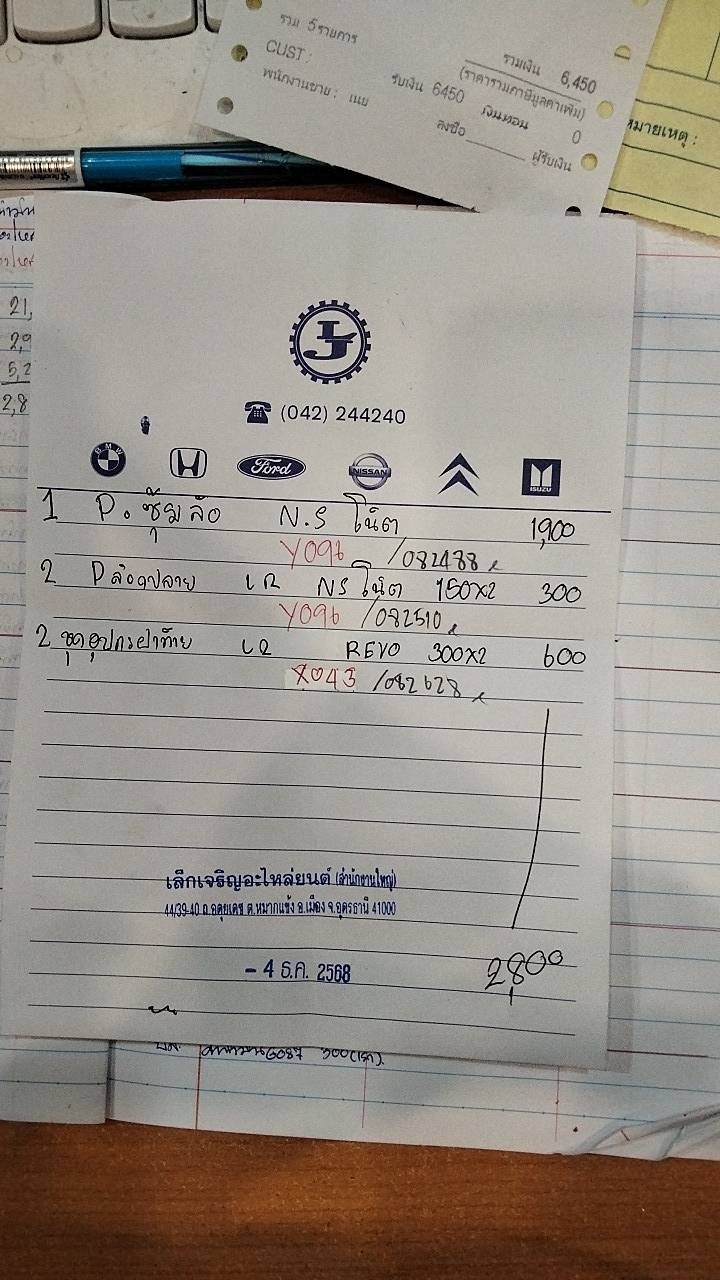 รวม 5รายการ
รวมเงิน 6,450
CUST :
(ราคารวมภาษีมูลค่าเพิ่ม)
รับเงิน 6450 เงินทอน 0
พนักงานขาย : เนย
ลงชื่อ ผู้รับเงิน
หมายเหตุ :
21,
2,9
5,2
2,8
LJ
(042) 244240
BMW
H
Ford
NISSAN
ISUZU
1 P. ซุ้มล้อ N.S โน๊ต 1,900
Y096 /082488
2 P ล๊อคปลาย LR NS โน๊ต 150x2 300
Y096 /082510
2 ชุดอุปกรฝาท้าย LR REVO 300x2 600
X043 /082628
เล็กเจริญอะไหล่ยนต์ (สำนักงานใหญ่)
44/39-40 ถ.อดุยเดช ต.หมากแข้ง อ.เมือง จ.อุดรธานี 41000
- 4 ธ.ค. 2568
2,800